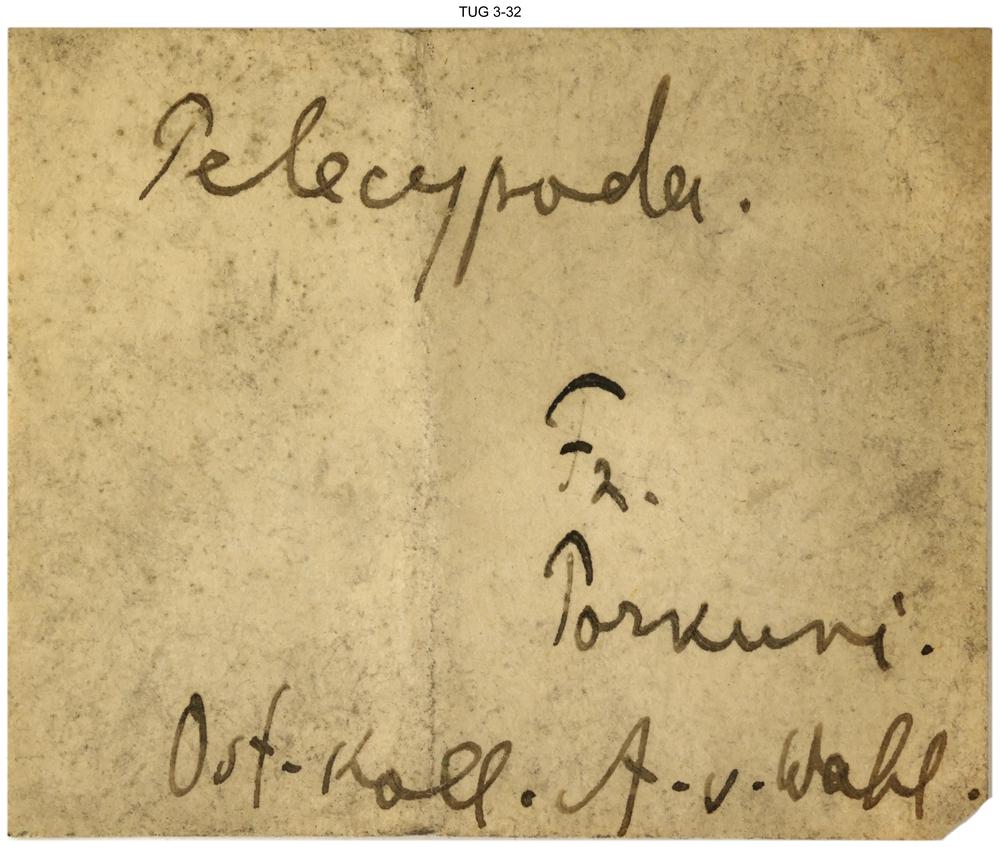 TUG 3-32
Pelecypoda.
F2.
Porkuni.
Ost-Koll. A. v. Wahl.